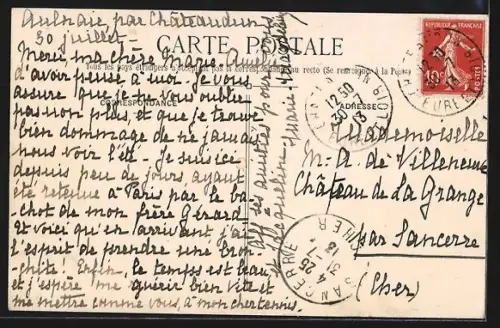 Aulnaie, par Châteaudun
30 juillet
CARTE POSTALE
Tous les pays étrangers n'acceptent pas la correspondance au recto (Se renseigner à la Poste)
CORRESPONDANCE
ADRESSE
Merci, ma chère Marie-Amélie
d'avoir pensé à moi. Je vous
assure que je ne vous oublie
pas non plus, et que je trouve
bien dommage de ne jamais
nous voir l'été. Je suis ici
depuis peu de jours ayant
été retenue à Paris par le ba-
chot de mon frère Gérard
Et voici qu'en arrivant j'ai
l'esprit de prendre une bron-
chite! Enfin, le temps est beau
et j'espère me guérir bien vite et
me mettre comme vous, à mon cher tennis.
Mademoiselle
M. A. de Villeneuve
Château de La Grange
par Sancerre
(Cher)
Mille amitiés pour
Jacqueline
RÉPUBLIQUE FRANÇAISE
10c
POSTES
12 50
30
13